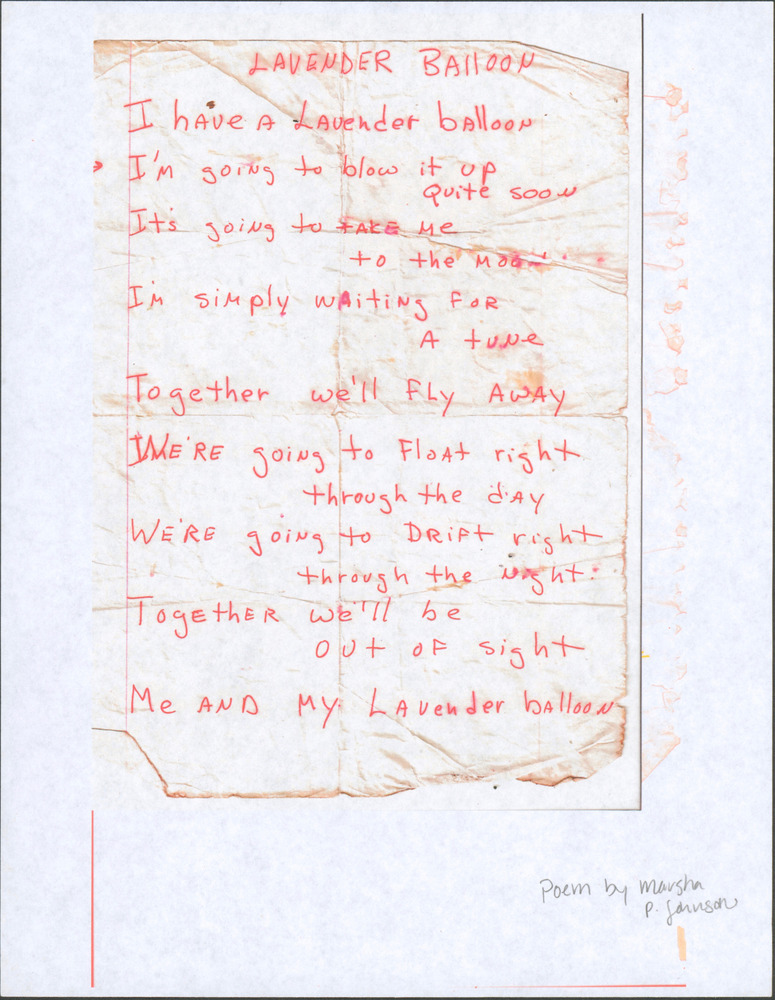 LAVENDER BAllOON
I hAve A LAvender bAlloon
I'm going to blow it up
Quite soon
It's going to tAKE Me
to the Moon
I'm siMply wAitiNg FOR
A tuNe
Together we'll FLy AwAy
WE'RE goiNg to FloAt right
through the dAy
WE'RE goiNg to DRiFt right
through the Night.
TogetHER we'll be
OUt OF sight
Me AND My LAvender bAlloon
Poem by Marsha
P. Johnson